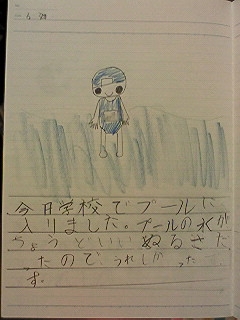 今日学校でプールに
入りました。プールの水が
ちょうどいいぬるさだ
ったので うれしかった
す。